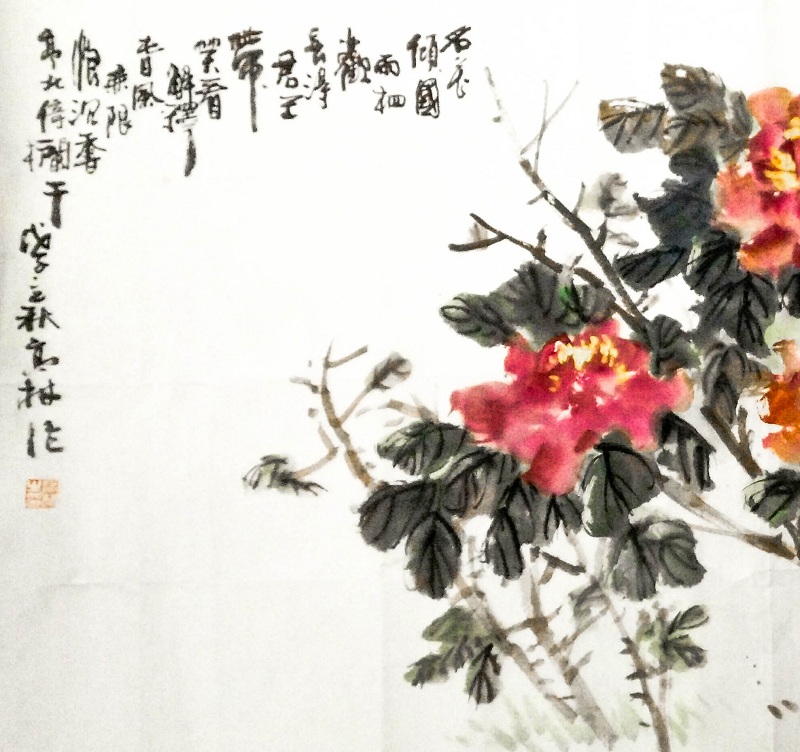 名花
傾國
兩相
歡
長得
君王
帶
笑看
解釋
春風
無限
恨沉香
亭北倚欄干
戊子立秋高林作